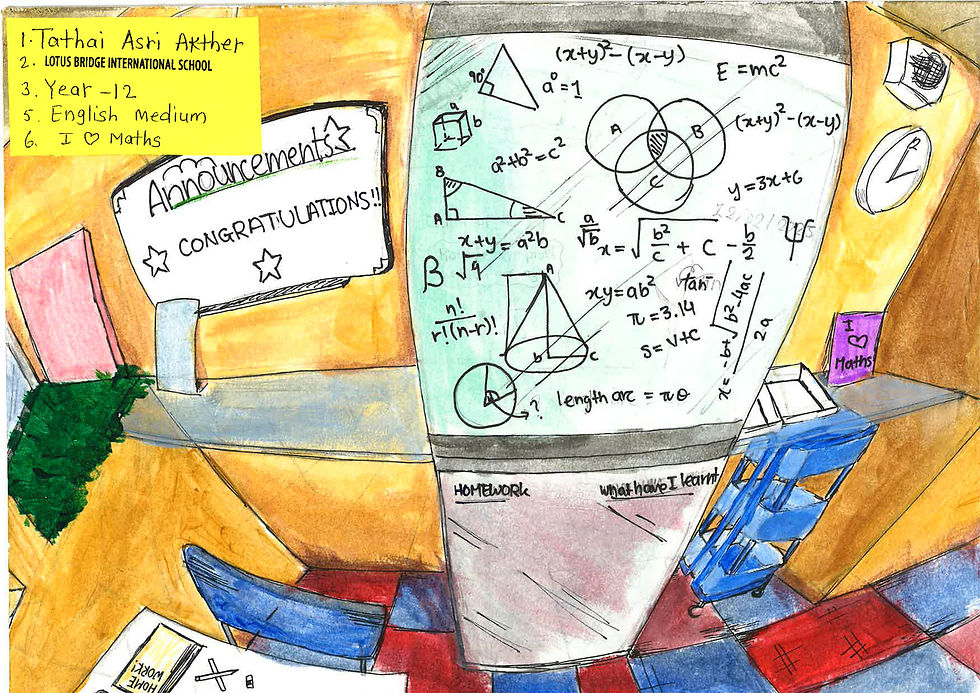 1. Tathai Asri Akther
2. LOTUS BRIDGE INTERNATIONAL SCHOOL
3. Year -12
5. English Medium
6. I ♡ Maths
Announcements
CONGRATULATIONS!!
90°
a° = 1
(x+y)² - (x-y)
E = mc²
a
b
a² + b² = c²
A
B
C
(x+y)² - (x-y)
y = 3x+6
B
A
C
x+y = a²b
√9
a/√b
x = √(b²/c + c) - b/2
ψ
β
n!/r!(n-r)!
A
b
C
xy = ab²
tan⁻
π = 3.14
s = v+c
x = -b+√(b²-4ac)/2a
?
length arc = πθ
I ♡ Maths
HOMEWORK
what have I learnt
HOME WORK!